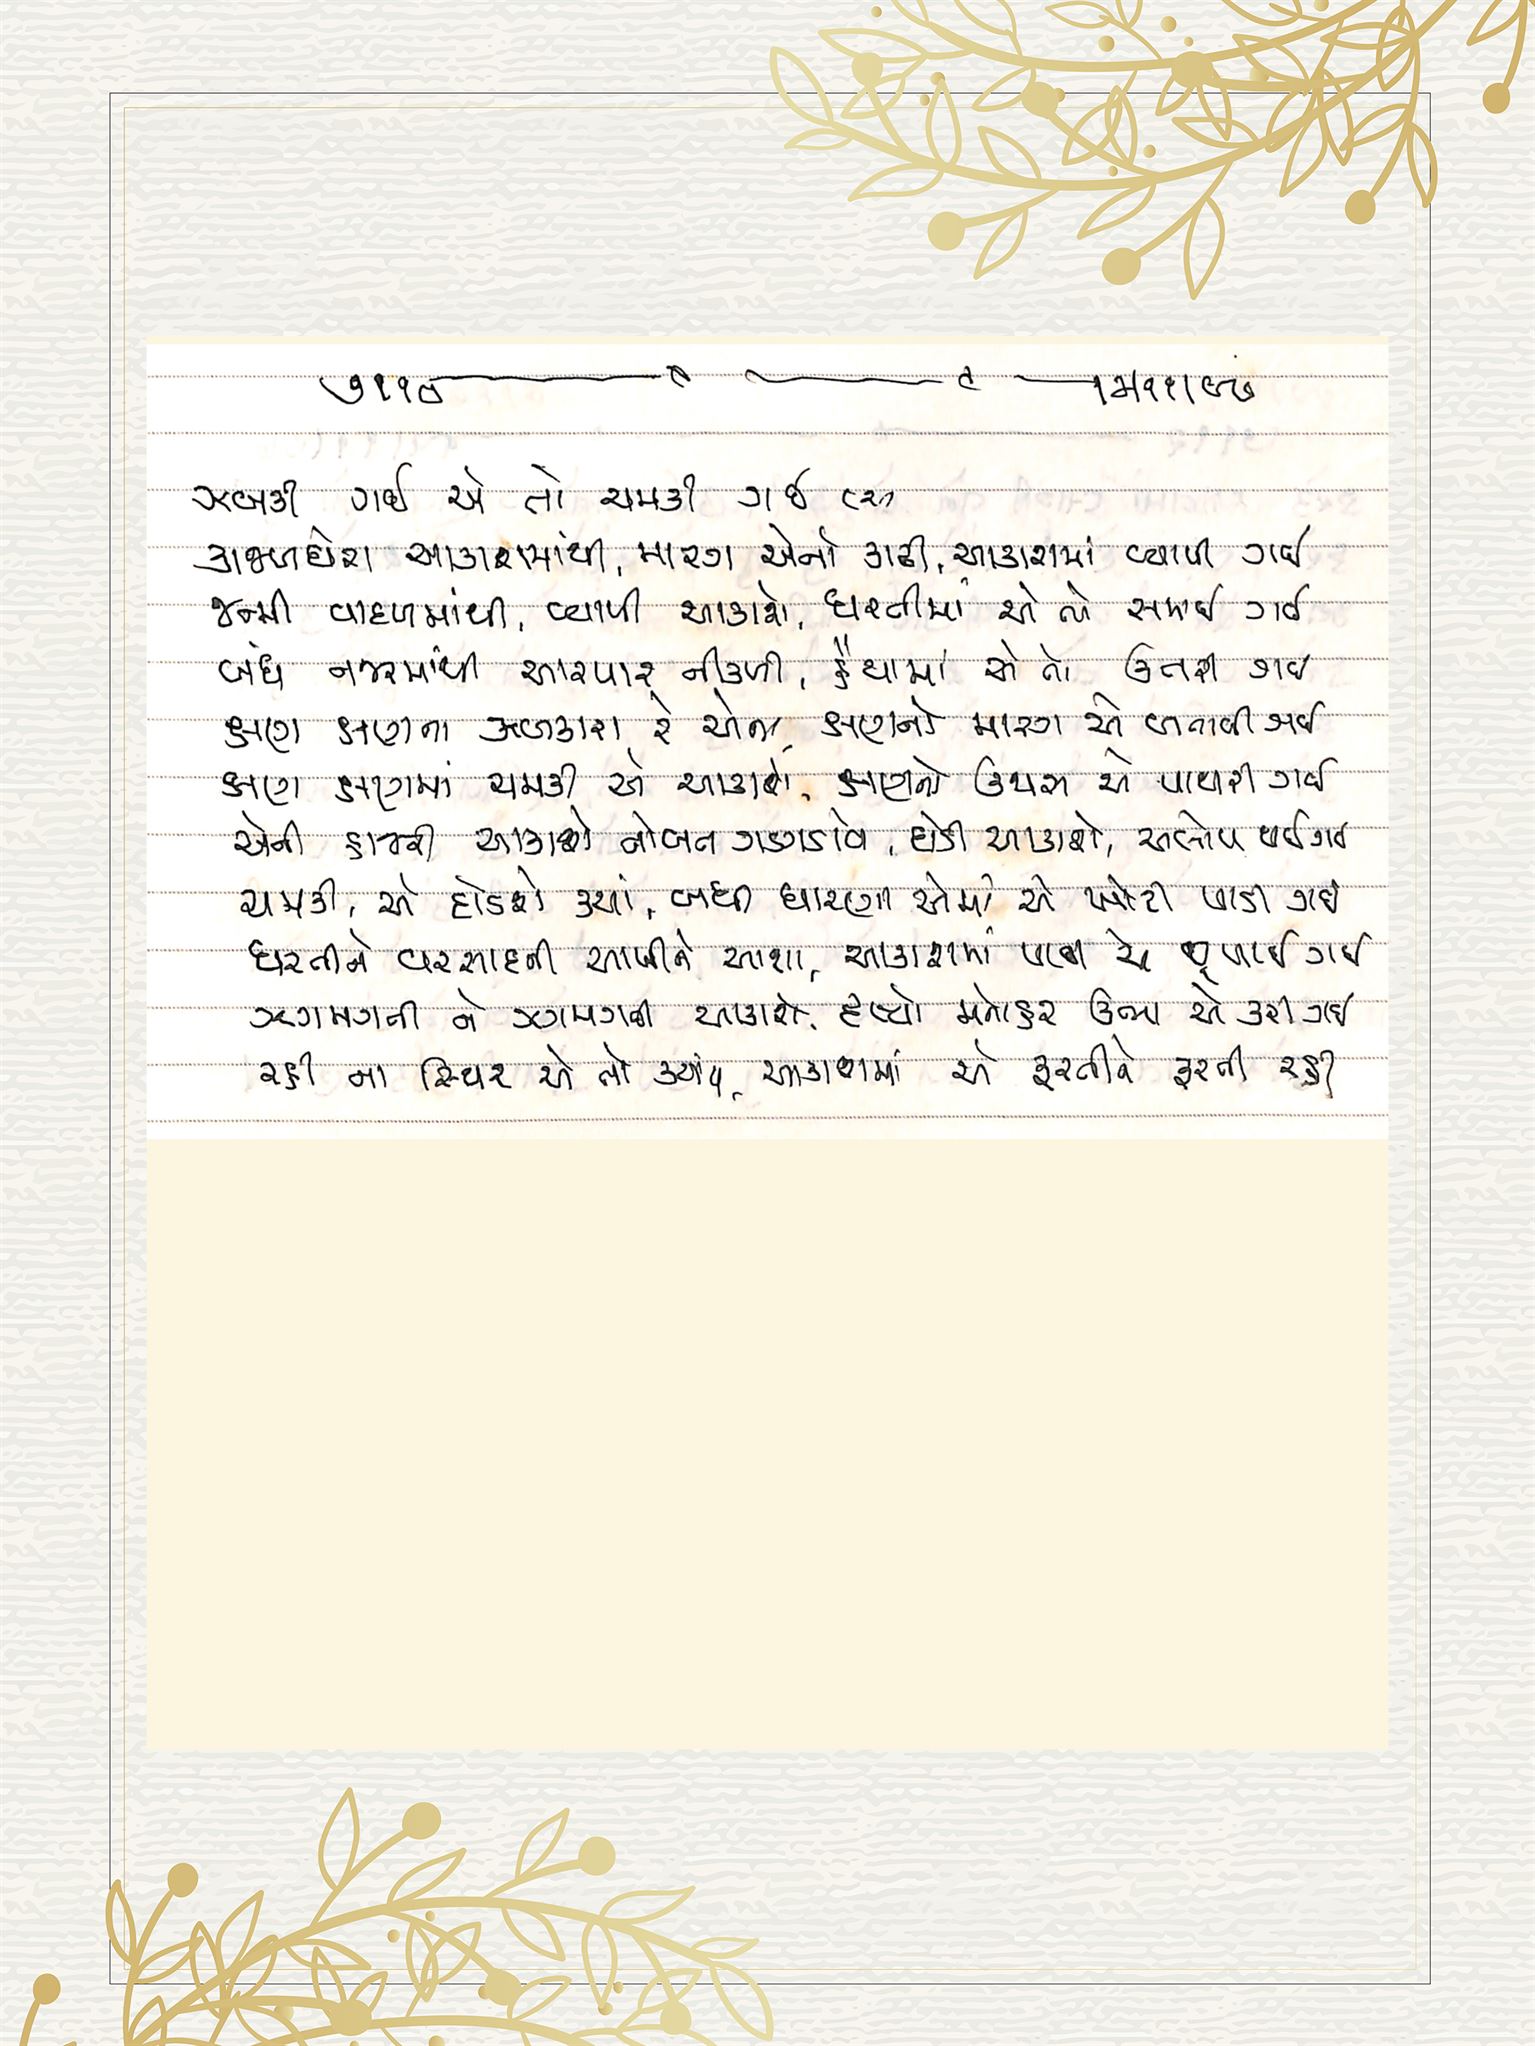 ઝબકી ગઈ એ તો ચમકી ગઈ
કાજળઘેરા આકાશમાંથી, મારગ એનો કાઢી, આકાશમાં વ્યાપી ગઈ
જન્મી વાદળમાંથી, વ્યાપી આકાશે, ધરતીમાં એ તો સમાઈ ગઈ
બંધ નજરમાંથી આરપાર નીકળી, હૈયામાં એ તો ઉતરી ગઈ
ક્ષણ ક્ષણના ઝળકારા રે એના, ક્ષણનો મારગ એ બનાવી ગઈ
ક્ષણ ક્ષણમાં ચમકી એ આકાશે, ક્ષણનો ઉજાસ એ પાથરી ગઈ
એની હાજરી આકાશે નોબત ગડગડાવે, દોડી આકાશે, અલોપ થઈ ગઈ
ચમકી, એ દોડશે ક્યાં, બધી ધારણા એમાં એ ખોટી પાડી ગઈ
ધરતીને વરસાદની આપીને આશા, આકાશમાં પાછી એ છુપાઈ ગઈ
ઝગમગતી ને ઝગમગતી આકાશે, દૃશ્યો મનોહર ઊભા એ કરી ગઈ
રહી ના સ્થિર એ તો ક્યાંય, આકાશમાં એ ફરતીને ફરતી રહી